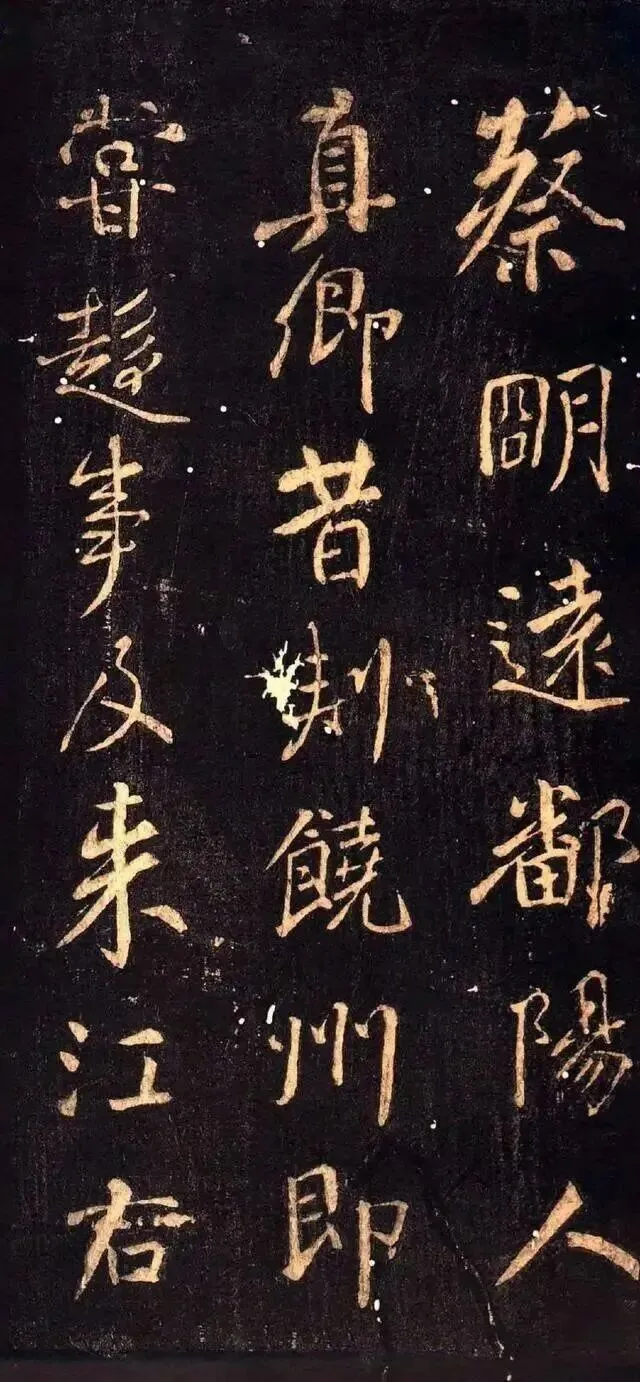 蔡明遠鄱陽人
真卿昔刾饒州即
甞趍事及来江右